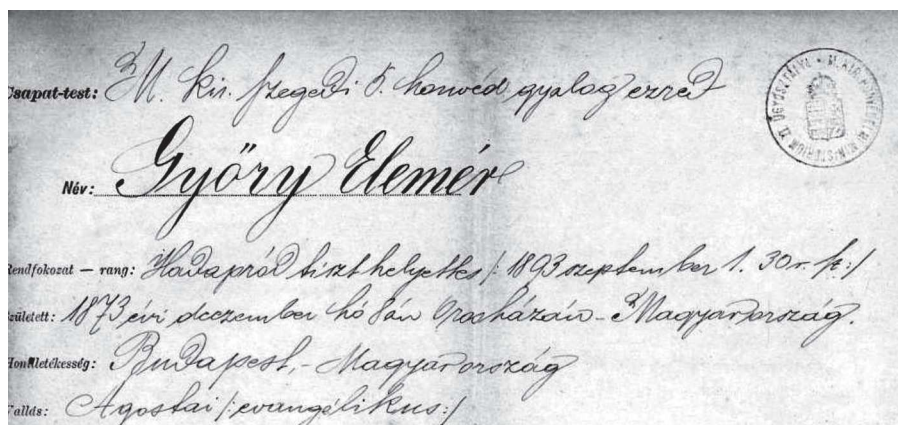 Csapat-test: M. kir. szegedi 5. honvéd gyalog ezred
Név: Győry Elemér
Rendfokozat — rang: Hadapród tiszthelyettes /: 1893 szeptember 1. 30 r. sz :/
Született: 1873 évi deczember hó 8án Orosházán - Magyarország.
Honilletékesség: Budapest, - Magyarország
Vallás: Ágostai /: evangélikus :/